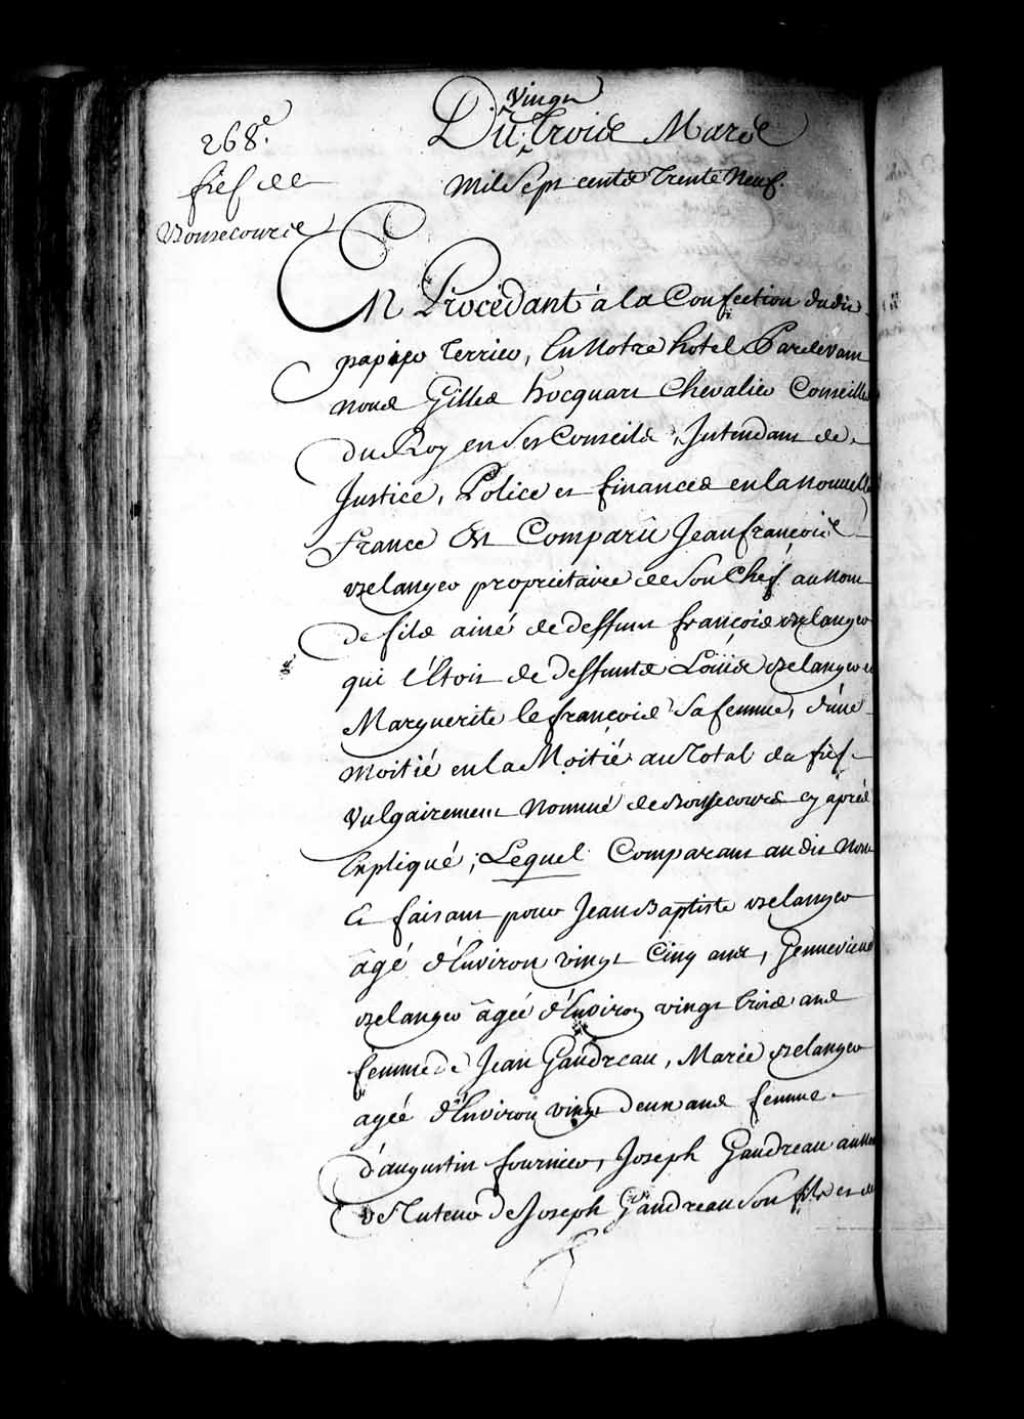 268.e
fief de
Bonsecours
vingt
Du trois Mars
Mil Sept cents Trente Neuf.
En Procedant à la Confection dudit
papier Terrier, En Notre hotel Pardevant
nous Gilles hocquart Chevalier Conseiller
du Roy en Ses Conseils, Intendant de
Justice, Police et finances en la nouvelle
France Est Comparû Jean françois
Belanger proprietaire de Son Chef au nom
de fils ainé de deffunt françois Belanger
qui l'Etoit de deffunts Loüis Belanger et
Marguerite le françois Sa femme, d'une
moitié en la Moitié au Total du fief
Vulgairement Nommé de Bonsecours cy après
Expliqué; Lequel Comparant audit Nom
Et faisant pour Jean Baptiste Belanger
âgé d'Environ vingt Cinq ans, Genevieve
Belanger âgée d'Environ vingt trois ans
femme de Jean Gaudreau, Marie Belanger
agée d'Environ vingt deux ans femme
d'augustin fournier, Joseph Gaudreau au nom
de Tuteur de Joseph Gaudreau Son fils et de